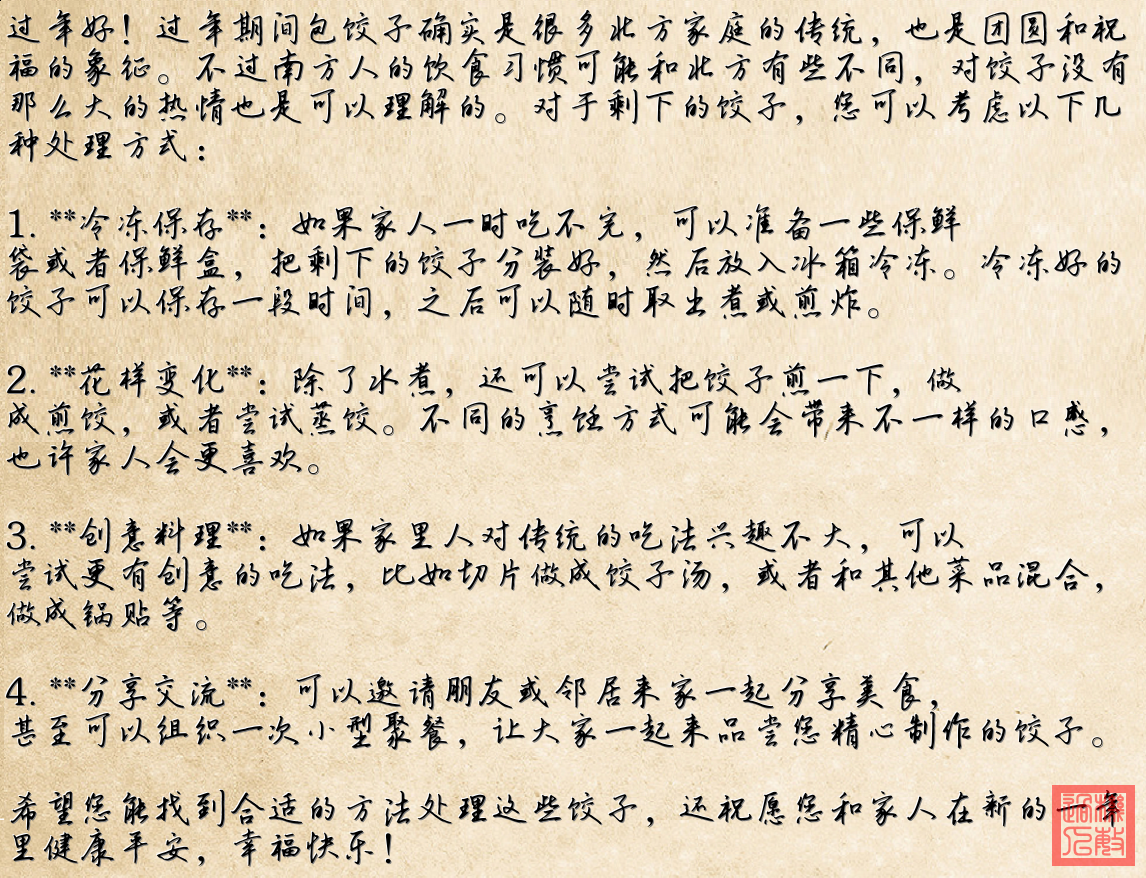 过年好！过年期间包饺子确实是很多北方家庭的传统，也是团圆和祝
福的象征。不过南方人的饮食习惯可能和北方有些不同，对饺子没有
那么大的热情也是可以理解的。对于剩下的饺子，您可以考虑以下几
种处理方式：
1. **冷冻保存**：如果家人一时吃不完，可以准备一些保鲜
袋或者保鲜盒，把剩下的饺子分装好，然后放入冰箱冷冻。冷冻好的
饺子可以保存一段时间，之后可以随时取出煮或煎炸。
2. **花样变化**：除了水煮，还可以尝试把饺子煎一下，做
成煎饺，或者尝试蒸饺。不同的烹饪方式可能会带来不一样的口感，
也许家人会更喜欢。
3. **创意料理**：如果家里人对传统的吃法兴趣不大，可以
尝试更有创意的吃法，比如切片做成饺子汤，或者和其他菜品混合，
做成锅贴等。
4. **分享交流**：可以邀请朋友或邻居来家一起分享美食，
甚至可以组织一次小型聚餐，让大家一起来品尝您精心制作的饺子。
希望您能找到合适的方法处理这些饺子，还祝愿您和家人在新的一年
里健康平安，幸福快乐！